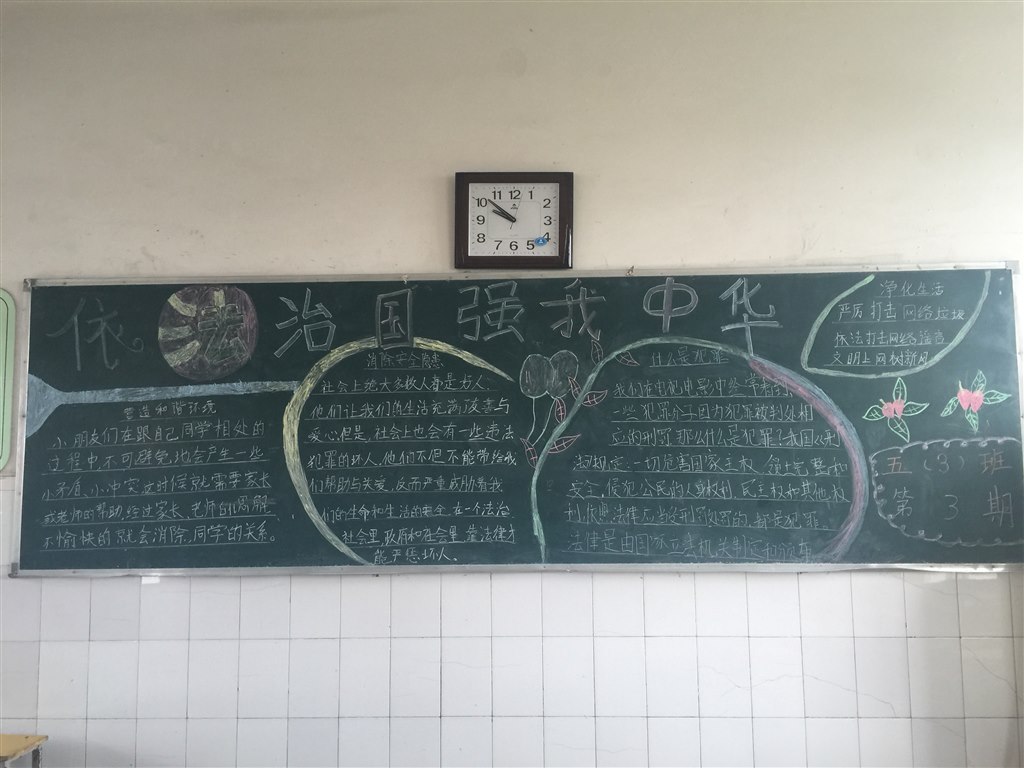 依法治国强我中华
11 12 1
10 2
9 3
8 4
7 6 5
营造和谐环境
小朋友们在跟自己同学相处的
过程中,不可避免地会产生一些
小矛盾、小冲突这时候就需要家长
或老师的帮助经过家长、老师的调解
不愉快的就会消除,同学的关系。
消除安全隐患
社会上绝大多数人都是好人,
他们让我们的生活充满友善与
爱心但是,社会上也会有一些违法
犯罪的坏人,他们不但不能带给我
们帮助与关爱,反而严重威胁着我
们的生命和生活的安全,在一个法治
社会里,政府和社会里,靠法律才
能严惩坏人。
什么是犯罪
我们在电视电影中经常看到
一些犯罪分子因为犯罪被判处相
应的刑罚,那么什么是犯罪?我国《刑
法》规定:一切危害国家主权、领土完整和
安全,侵犯公民的人身权利、民主权和其他权
利,依照法律应当受刑罚处罚的,都是犯罪,
法律是由国家立法机关制定和颁布
净化生活
严厉打击网络垃圾
依法打击网络谣言
文明上网树新风
五(3)班
第3期